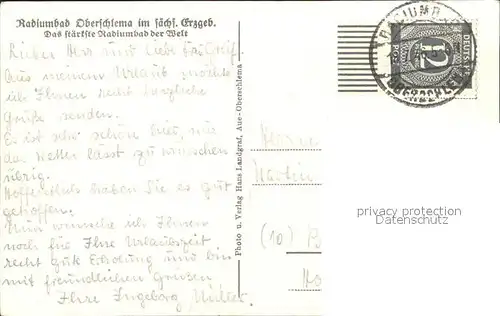 Radiumbad Oberschlema im sächs. Erzgeb.
Das stärkste Radiumbad der Welt
Lieber Herr und liebe
Aus meinem Urlaub möchte
ich Ihnen recht herzliche
Grüße senden.
Es ist sehr schön hier, nur
das Wetter lässt zu wünschen
übrig.
Hoffentlich haben Sie es gut
getroffen.
Nun wünsche ich Ihnen
noch für Ihre Urlaubszeit
recht gute Erholung und bin
mit freundlichen Grüßen
Ihre Ingeborg
Photo u. Verlag Hans Landgraf, Aue-Oberschlema
RADIUMB
OBERSCHLEMA
12
DEUTSCHE
POST
Martin
(10)
privacy protection
S.Mail.com